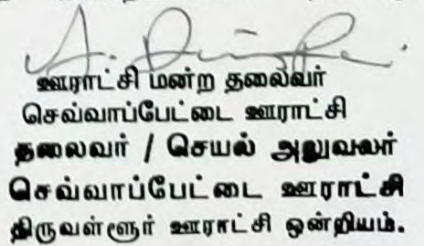 ஊராட்சி மன்ற தலைவர்
செவ்வாப்பேட்டை ஊராட்சி
தலைவர் / செயல் அலுவலர்
செவ்வாப்பேட்டை ஊராட்சி
திருவள்ளூர் ஊராட்சி ஒன்றியம்.